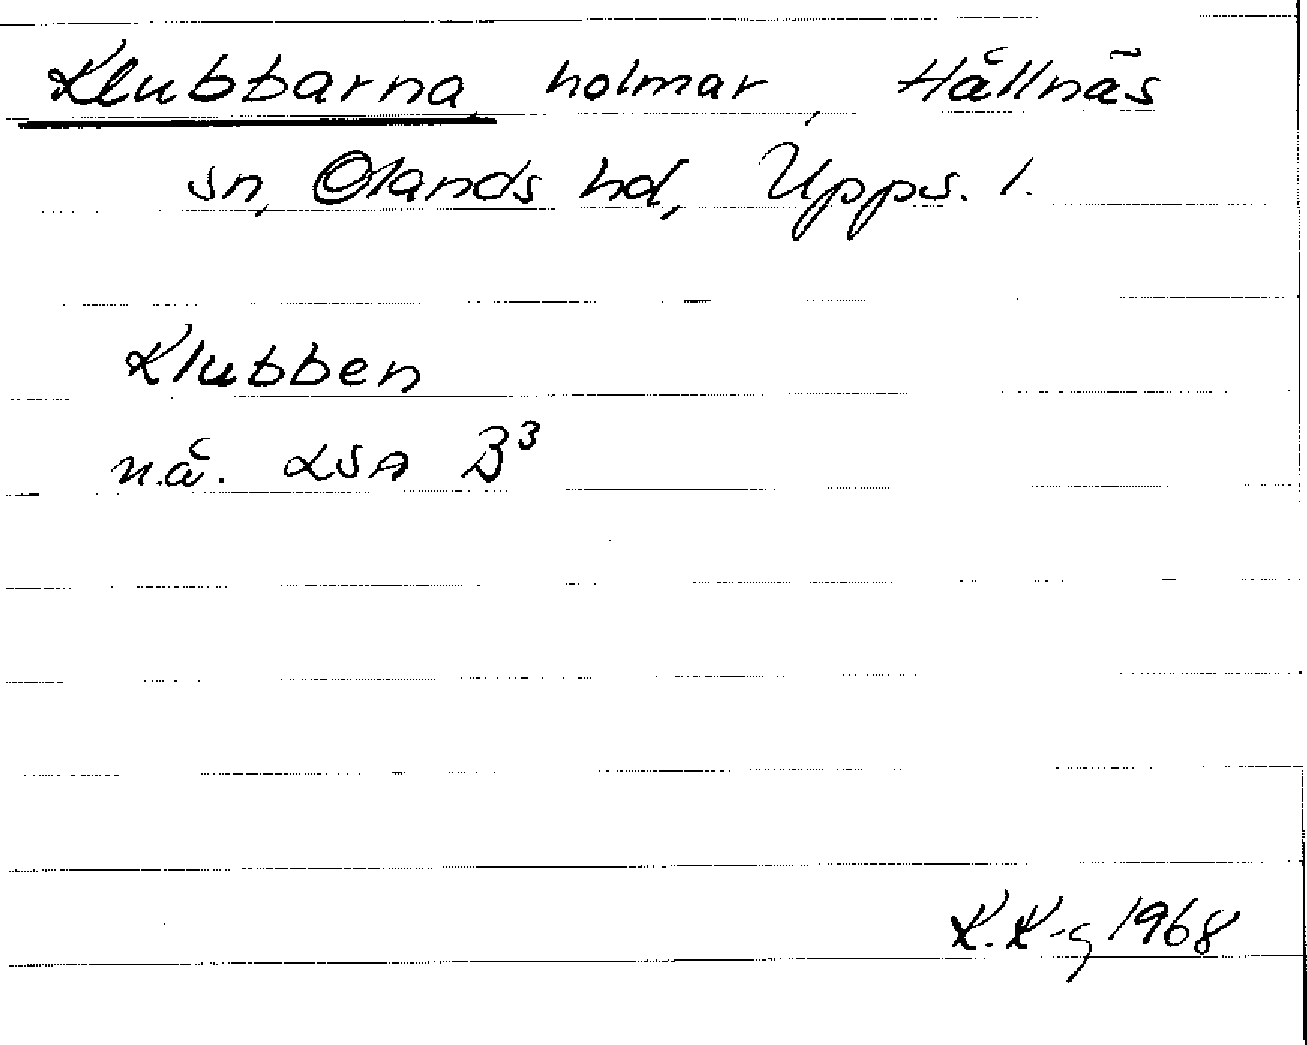 Klubbarna, holmar, Hållnäs
sn, Olands hd, Upps. l.
Klubben
n.ä. LSA B³
K. K-g 1968